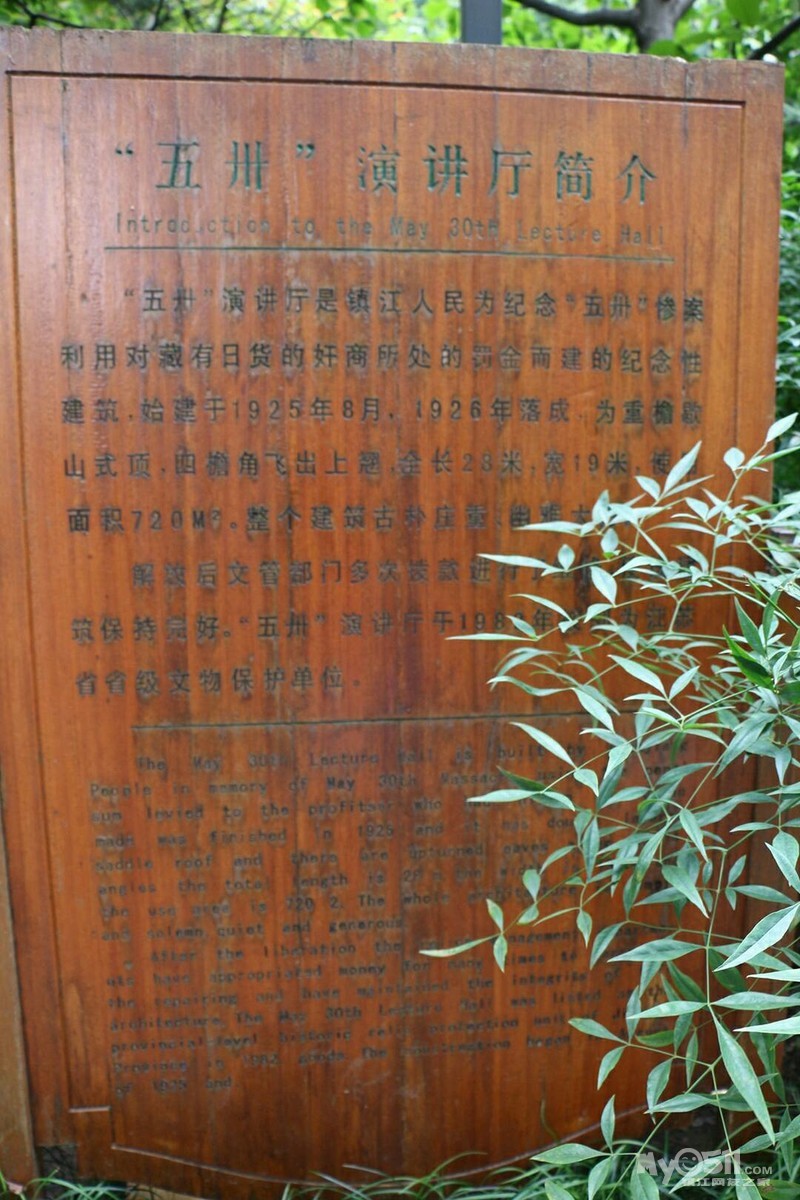 “五卅”演讲厅简介
Introduction to the May 30th Lecture Hall
“五卅”演讲厅是镇江人民为纪念“五卅”惨案
利用对藏有日货的奸商所处的罚金而建的纪念性
建筑,始建于1925年8月,1926年落成,为重檐歇
山式顶,四檐角飞出上翘,全长28米,宽19米,使用
面积720M²。整个建筑古朴庄重、幽雅大
解放后文管部门多次拨款进行了
筑保持完好。“五卅”演讲厅于1982年 为江苏
省省级文物保护单位。
The May 30th Lecture Hall is built by
People in memory of May 30th Massac
sum levied to the profitser who
made was finished in 1926 and it has dou
saddle roof and there are upturned eaves
angles the total length is 28 m the width
the use area is 720 2. The whole architecture
and solemn,quiet and generous.
After the liberation the
have appropriated money for many times to
the repairing and have maintained the integrity of
architecture. The May 30th Lecture Hall was listed as the
provincial-level historic relic protection unit of
in 1982 goods. The construction began
of 1925 and.
My0511.COM
镇江网友之家